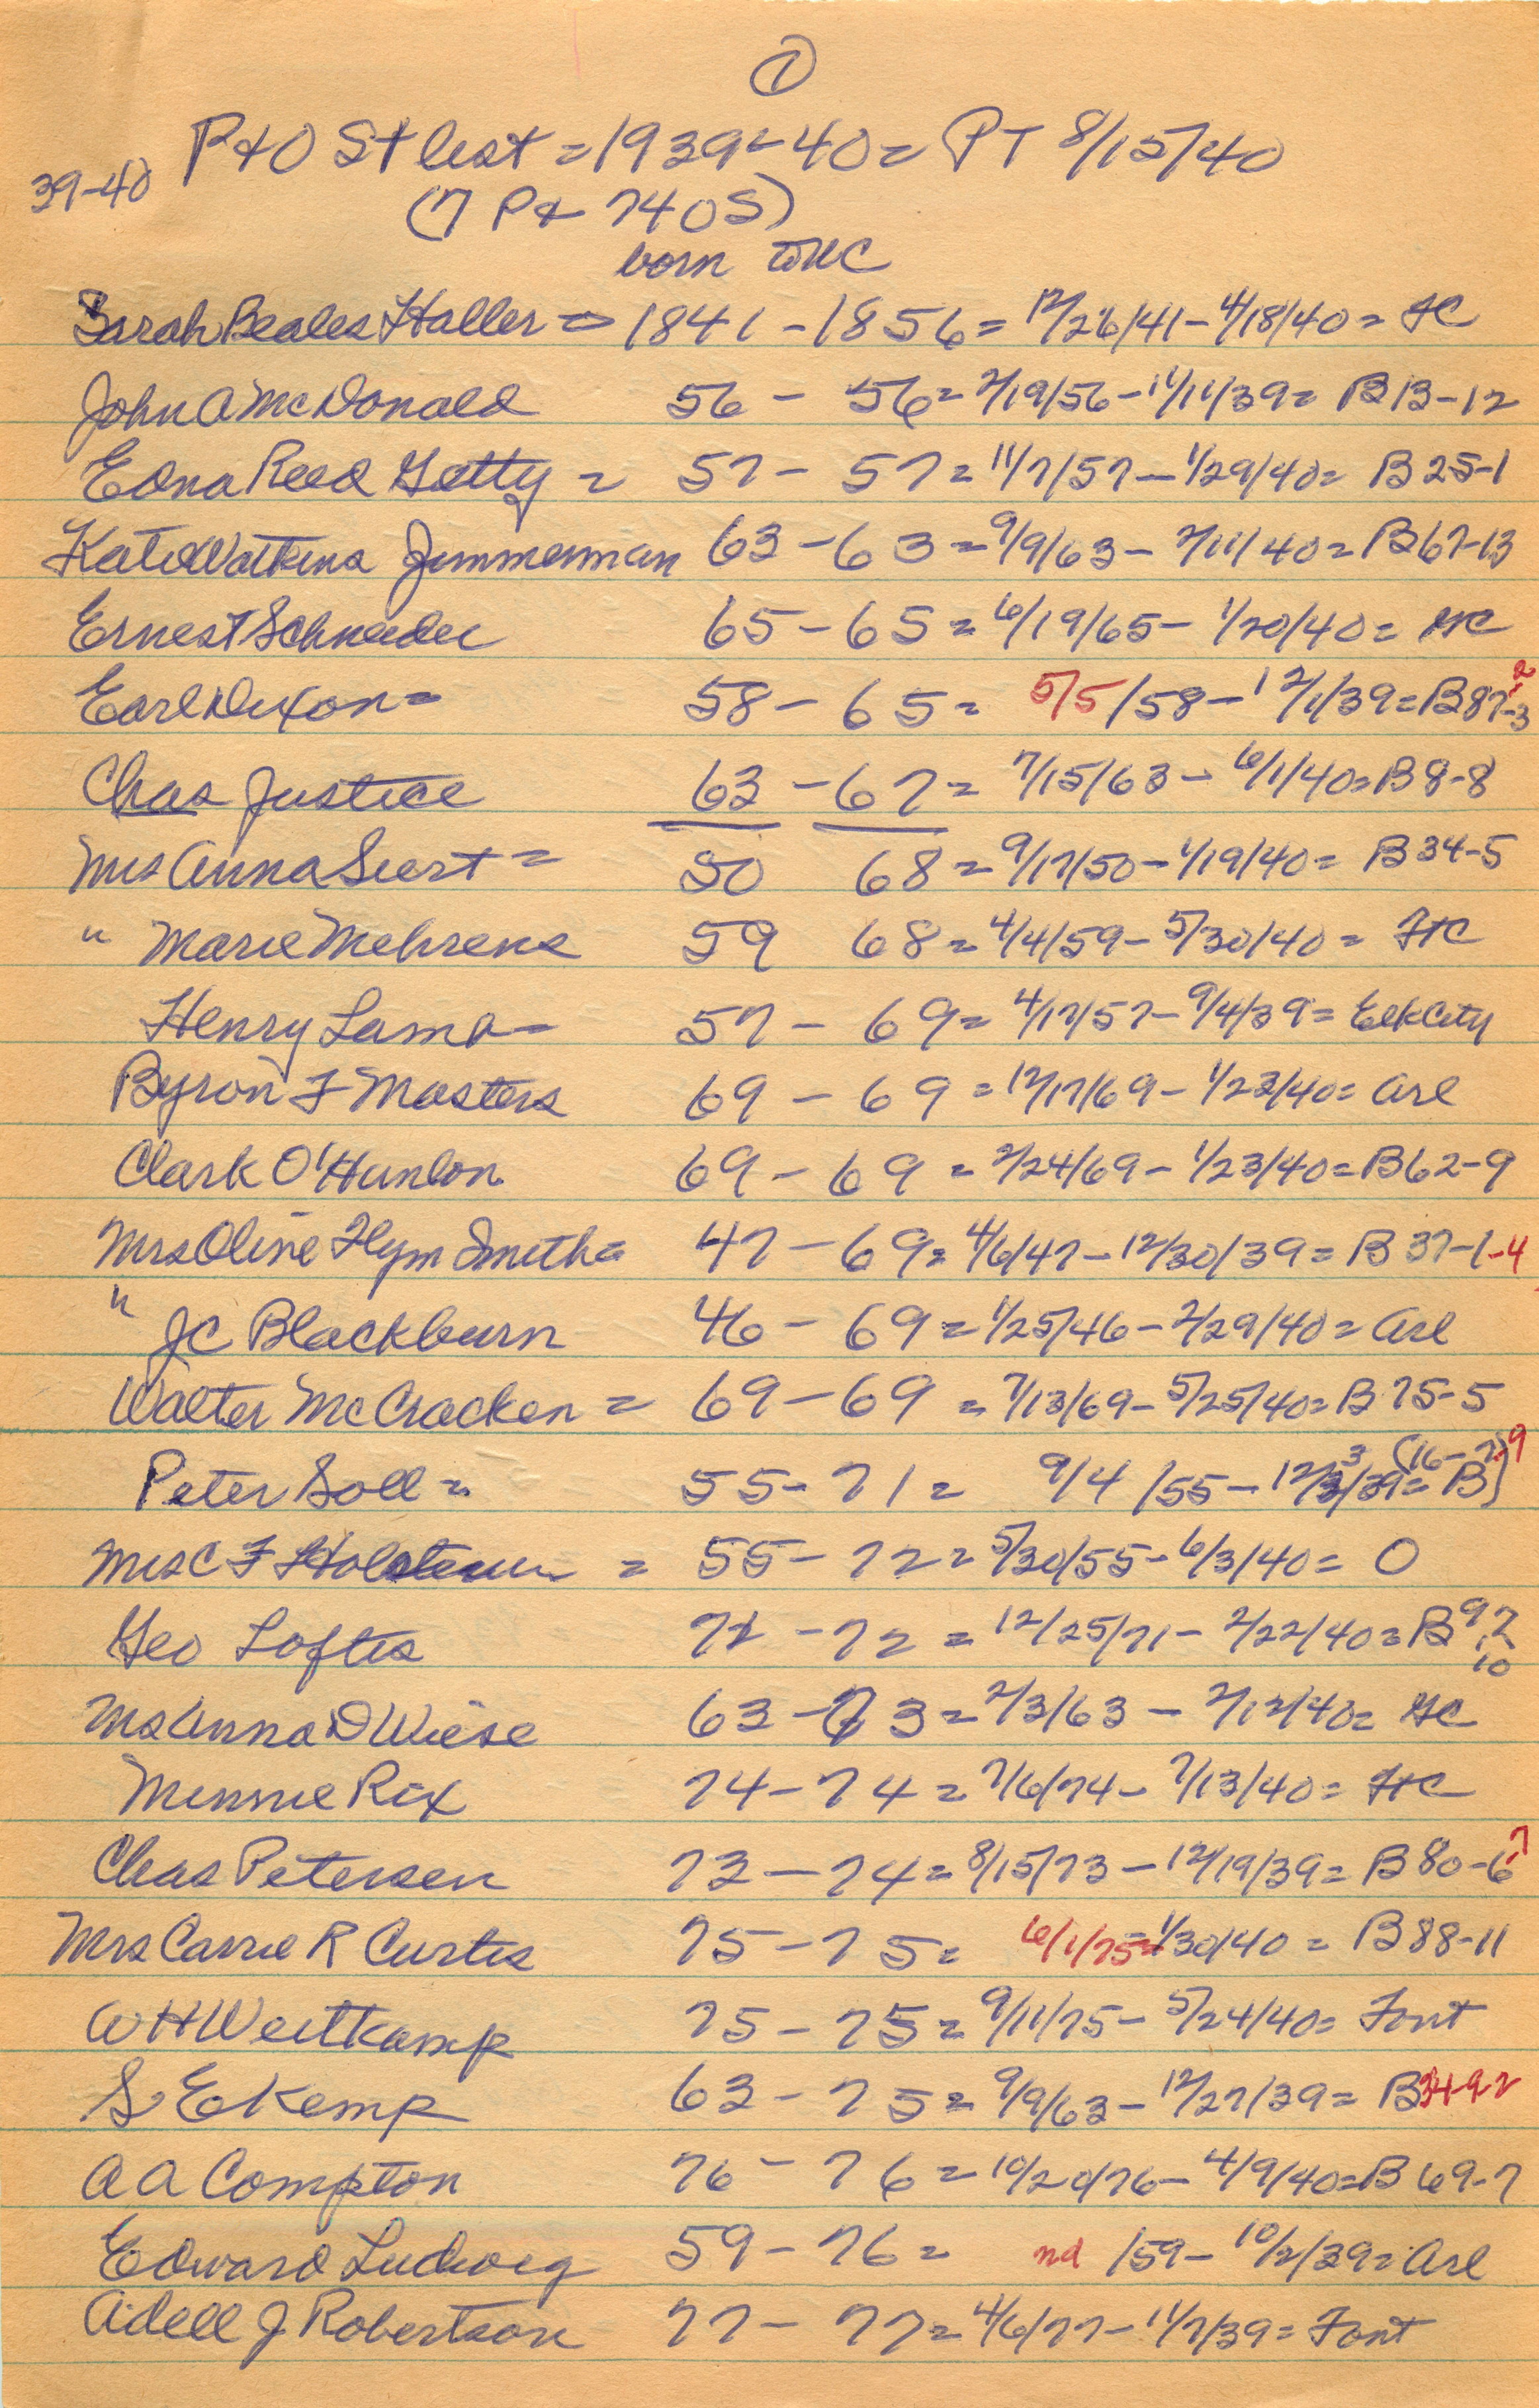 ①
P & O St list = 1939-40 = PT 8/15/40
39-40
(7 P & 740S)
born to WC
Sarah Beales Haller = 1841 - 1856 = 12/26/41 - 4/18/40 = HC
John A McDonald 56 - 56 = 2/19/56 - 11/11/39 = B 13-12
Edna Reed Getty = 57 - 57 = 11/7/57 - 1/29/40 = B 25-1
Kate Watkins Zimmerman 63 - 63 = 9/9/63 - 2/11/40 = B 67-13
Ernest Schneider 65 - 65 = 6/19/65 - 1/20/40 = HC
Earl Dixon = 58 - 65 = 5/5/58 - 12/1/39 = B 87-3 -2
Chas Justice 63 - 67 = 7/15/63 - 6/1/40 = B 8-8
Mrs Anna Siert = 50 68 = 9/17/50 - 1/19/40 = B 34-5
" Marie Mehrens 59 68 = 4/4/59 - 5/30/40 = HC
Henry Lamp = 57 - 69 = 4/17/57 - 9/4/39 = Elk City
Byron F Masters 69 - 69 = 12/17/69 - 1/23/40 = Arl
Clark O'Hanlon 69 - 69 = 2/24/69 - 1/23/40 = B 62-9
Mrs Oline Flym Smith = 47 - 69 = 4/6/47 - 12/30/39 = B 37-1-4
" JC Blackburn 46 - 69 = 1/25/46 - 2/29/40 = Arl
Walter McCracken = 69 - 69 = 7/13/69 - 5/25/40 = B 75-5
Peter Soll = 55 - 71 = 9/4/55 - 12/3/39 = B (16-7)-9
Mrs C F Holstein = 55 - 72 = 5/30/55 - 6/3/40 = O
Geo Loftis 72 - 72 = 12/25/71 - 2/22/40 = B 97-10
Mrs Anna D Wiese 63 - 73 = 2/3/63 - 2/12/40 = HC
Minnie Rix 74 - 74 = 7/6/74 - 7/13/40 = HC
Chas Petersen 73 - 74 = 8/15/73 - 12/19/39 = B 80-6-7
Mrs Carrie R Curtis 75 - 75 = 6/1/75 = 1/30/40 = B 88-11
WH Weitkamp 75 - 75 = 9/11/75 - 5/24/40 = Font
S E Kemp 63 - 75 = 9/9/63 - 12/27/39 = B 34-9-2
A A Compton 76 - 76 = 10/20/76 - 4/9/40 = B 69-7
Edward Ludwig 59 - 76 = nd /59 - 10/2/39 = Arl
Adell J Robertson 77 - 77 = 4/6/77 - 11/7/39 = Font